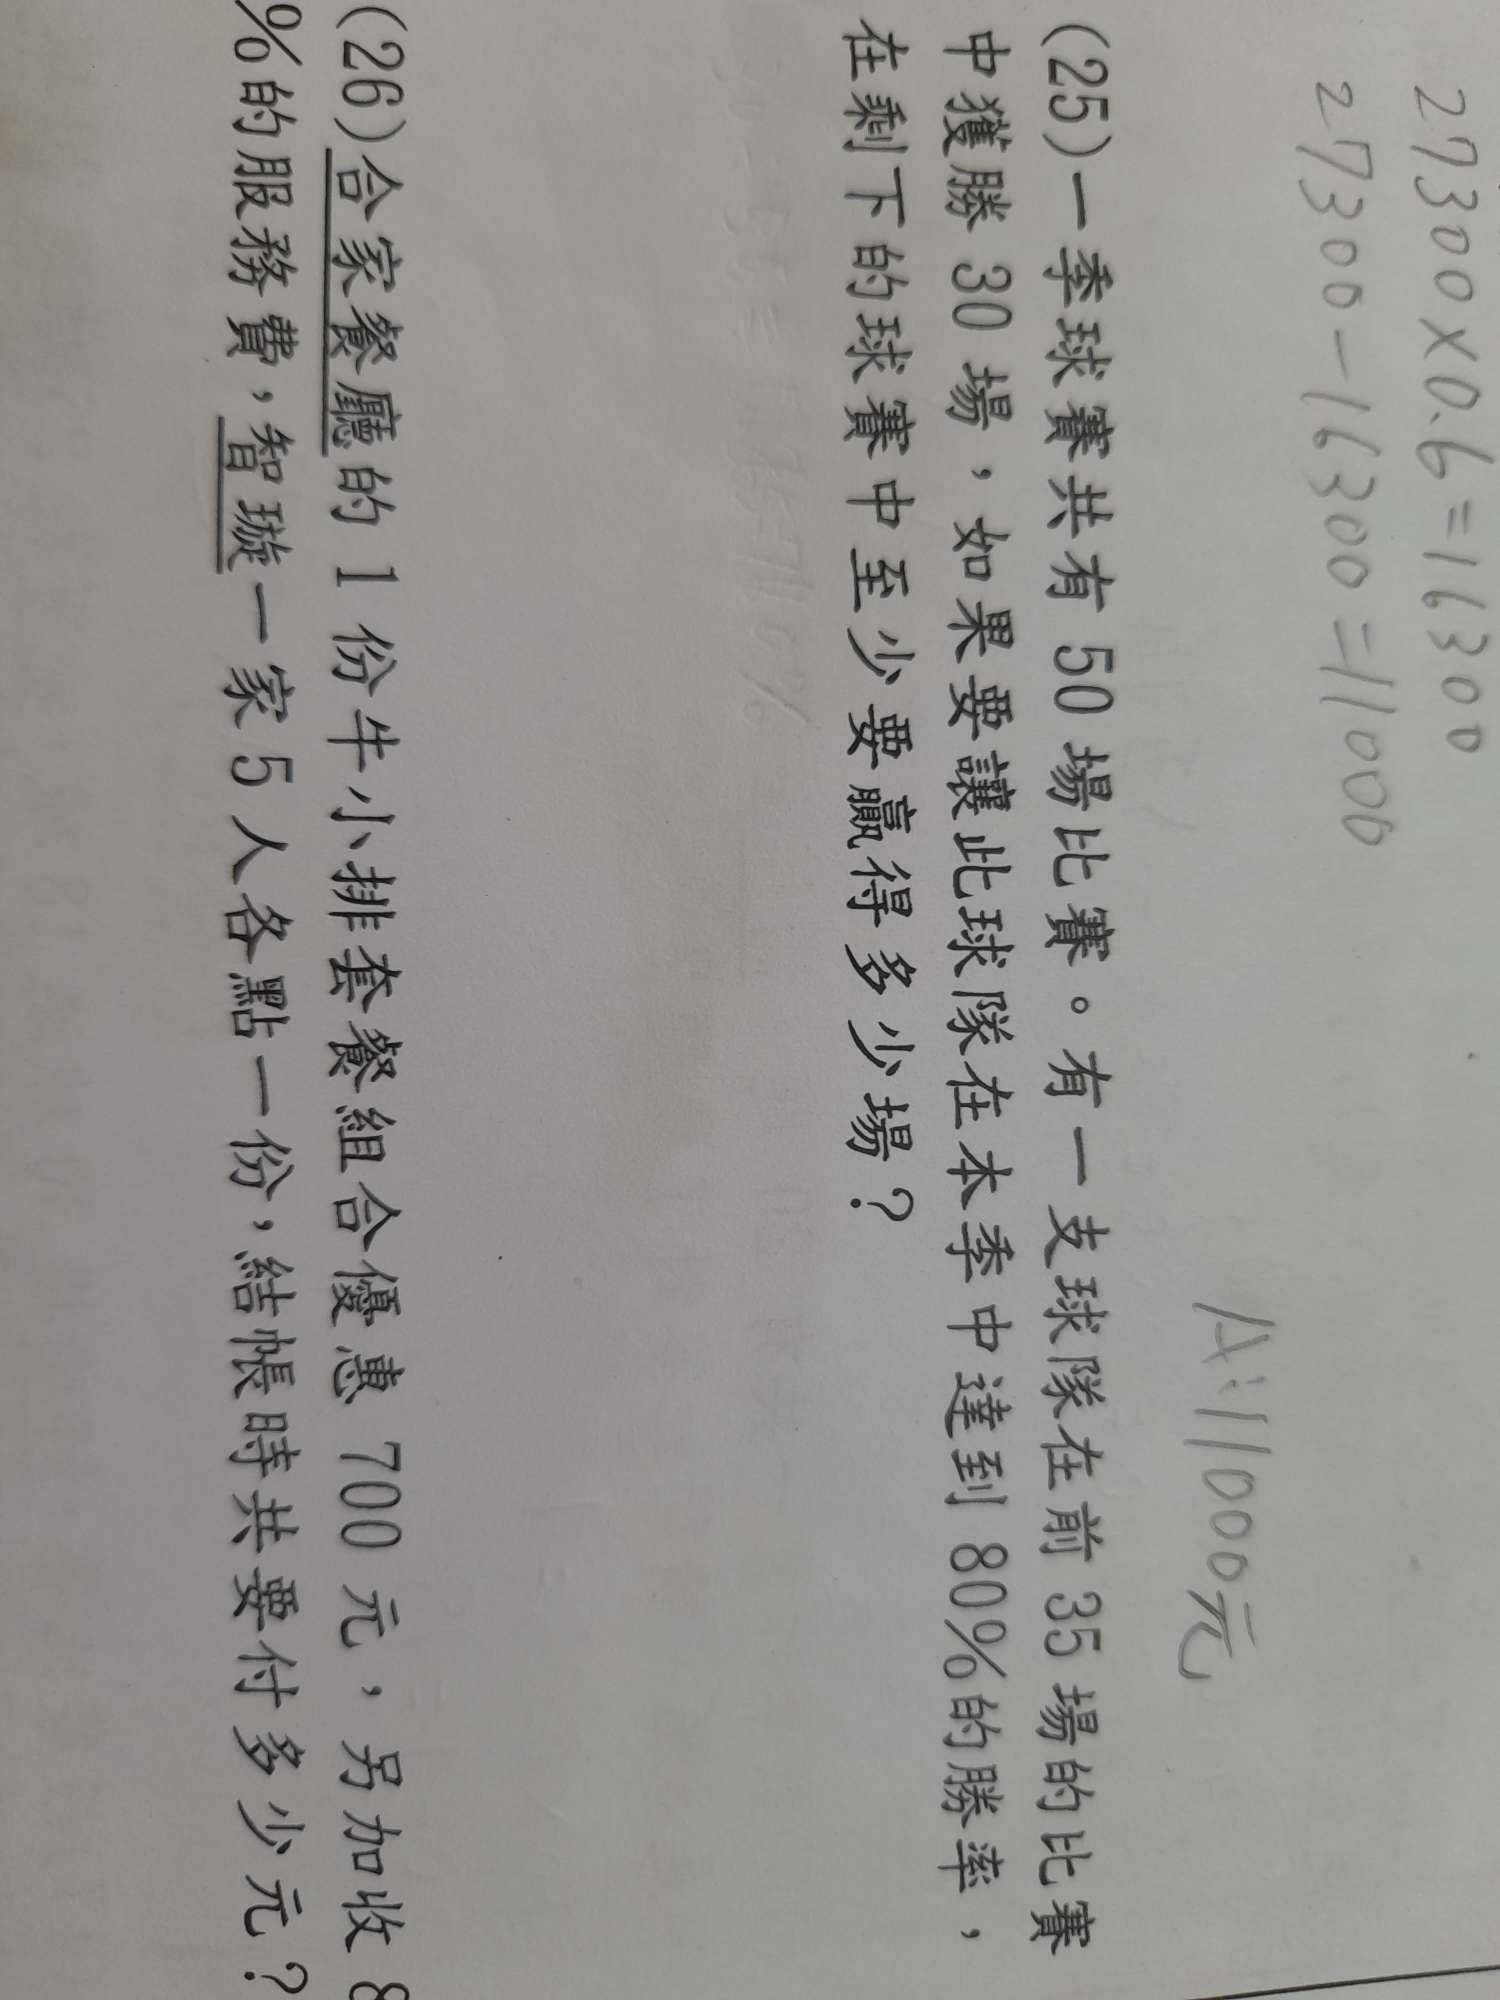 27300×0.6=16300
27300-16300=11000
A:11000元
(25)一季球賽共有 50 場比賽。有一支球隊在前 35 場的比賽
中獲勝 30 場，如果要讓此球隊在本季中達到 80%的勝率，
在剩下的球賽中至少要贏得多少場?
(26)合家餐廳的 1 份牛小排套餐組合優惠 700 元，另加收 8
%的服務費，智璇一家 5 人各點一份，結帳時共要付多少元?